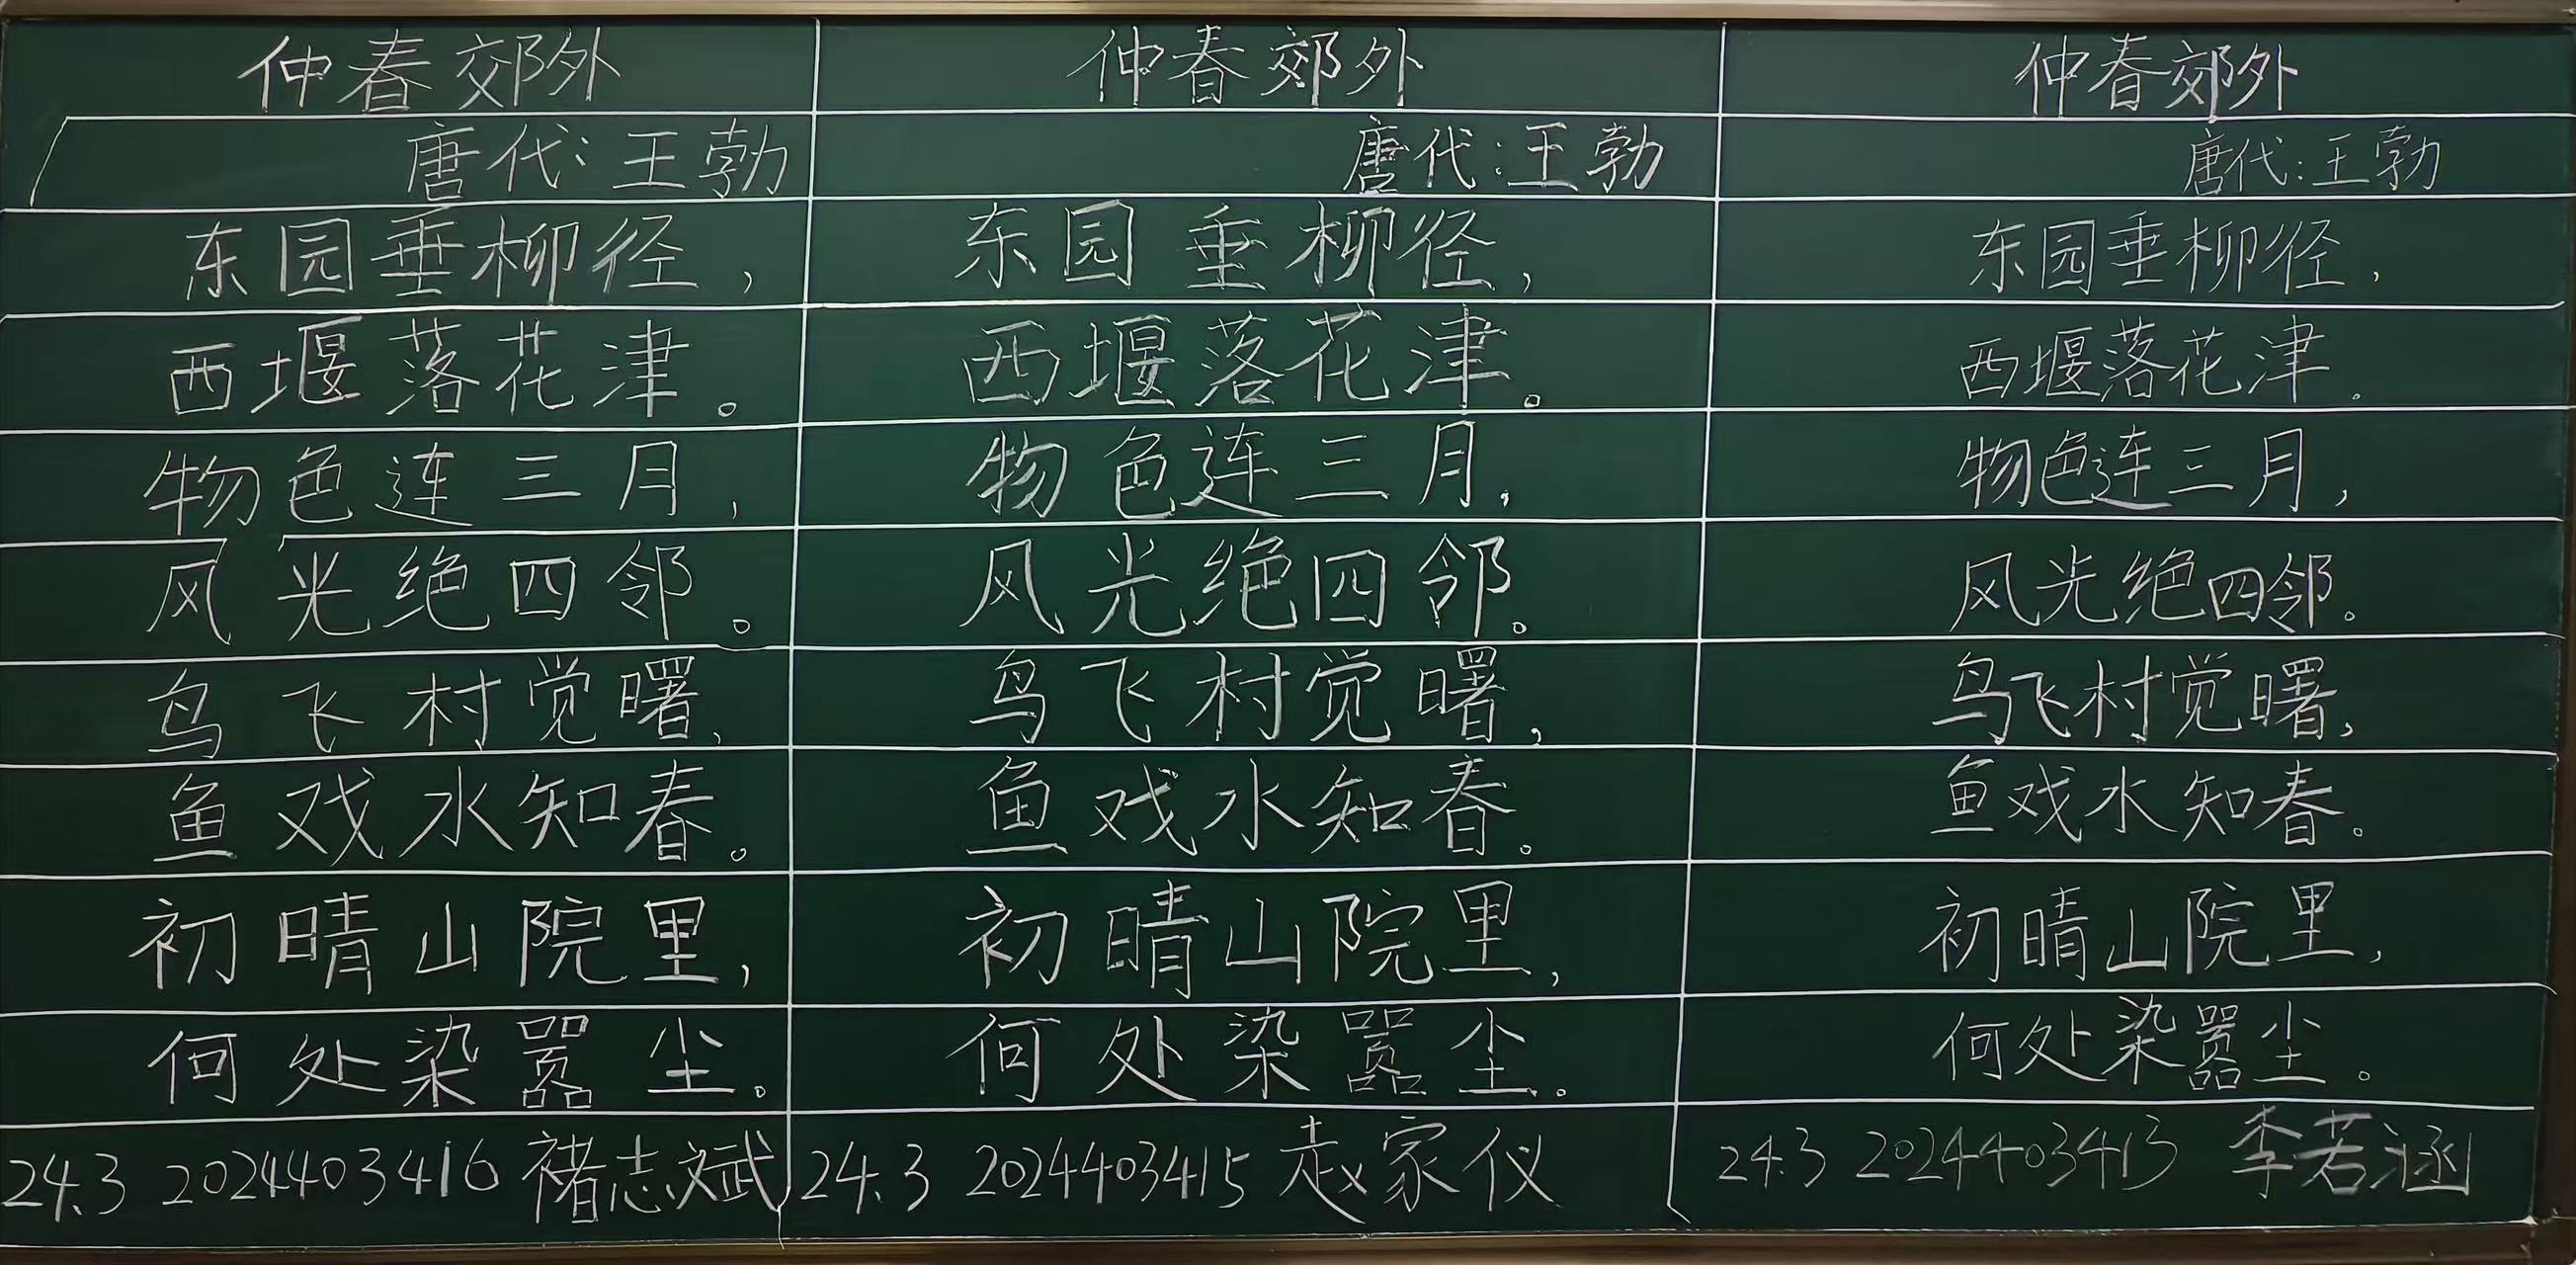 仲春郊外
唐代:王勃
东园垂柳径,
西堰落花津。
物色连三月,
风光绝四邻。
鸟飞村觉曙,
鱼戏水知春。
初晴山院里,
何处染嚣尘。
24.3 2024403416 褚志斌
仲春郊外
唐代:王勃
东园垂柳径,
西堰落花津。
物色连三月,
风光绝四邻。
鸟飞村觉曙,
鱼戏水知春。
初晴山院里,
何处染嚣尘。
24.3 2024403415 赵家仪
仲春郊外
唐代:王勃
东园垂柳径,
西堰落花津。
物色连三月,
风光绝四邻。
鸟飞村觉曙,
鱼戏水知春。
初晴山院里,
何处染嚣尘。
24.3 2024403413 李若涵